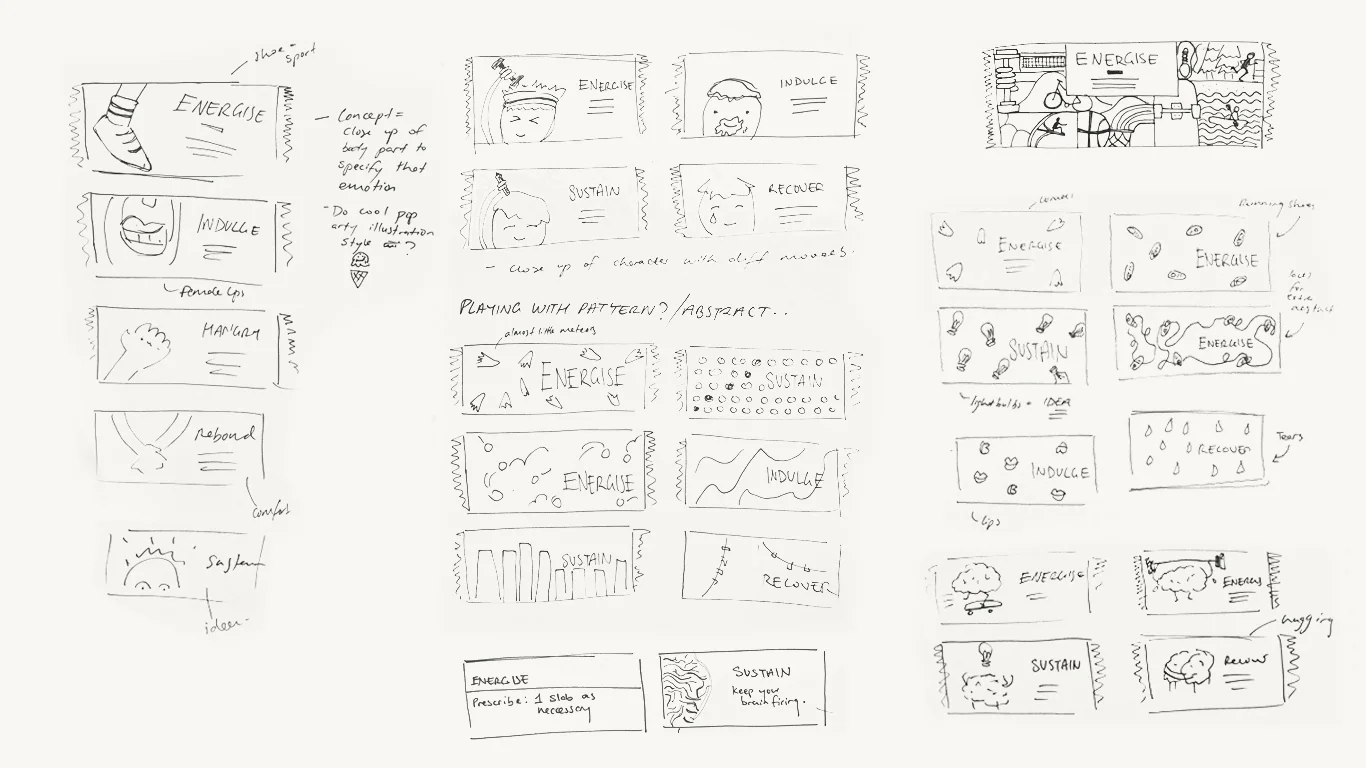 shoe =
sport
ENERGISE
- Concept =
close up of
body part to
specify that
emotion
INDULGE
- Do cool pop
arty illustration
style
?
female lips
HANGRY
Rebound
comfort
Sustain
idea
ENERGISE
INDULGE
SUSTAIN
RECOVER
- close up of character with diff moods.
PLAYING WITH PATTERN? / ABSTRACT..
almost little meteors
ENERGISE
SUSTAIN
ENERGISE
INDULGE
SUSTAIN
RECOVER
ENERGISE
Prescribe: 1 slab as
necessary
SUSTAIN
keep your
brain firing.
ENERGISE
Running shoes
ENERGISE
ENERGISE
laces
for
extra
abstract
SUSTAIN
ENERGISE
lightbulbs = IDEA
INDULGE
RECOVER
Tears
lips
ENERGISE
ENERGISE
hugging
SUSTAIN
RECOVER